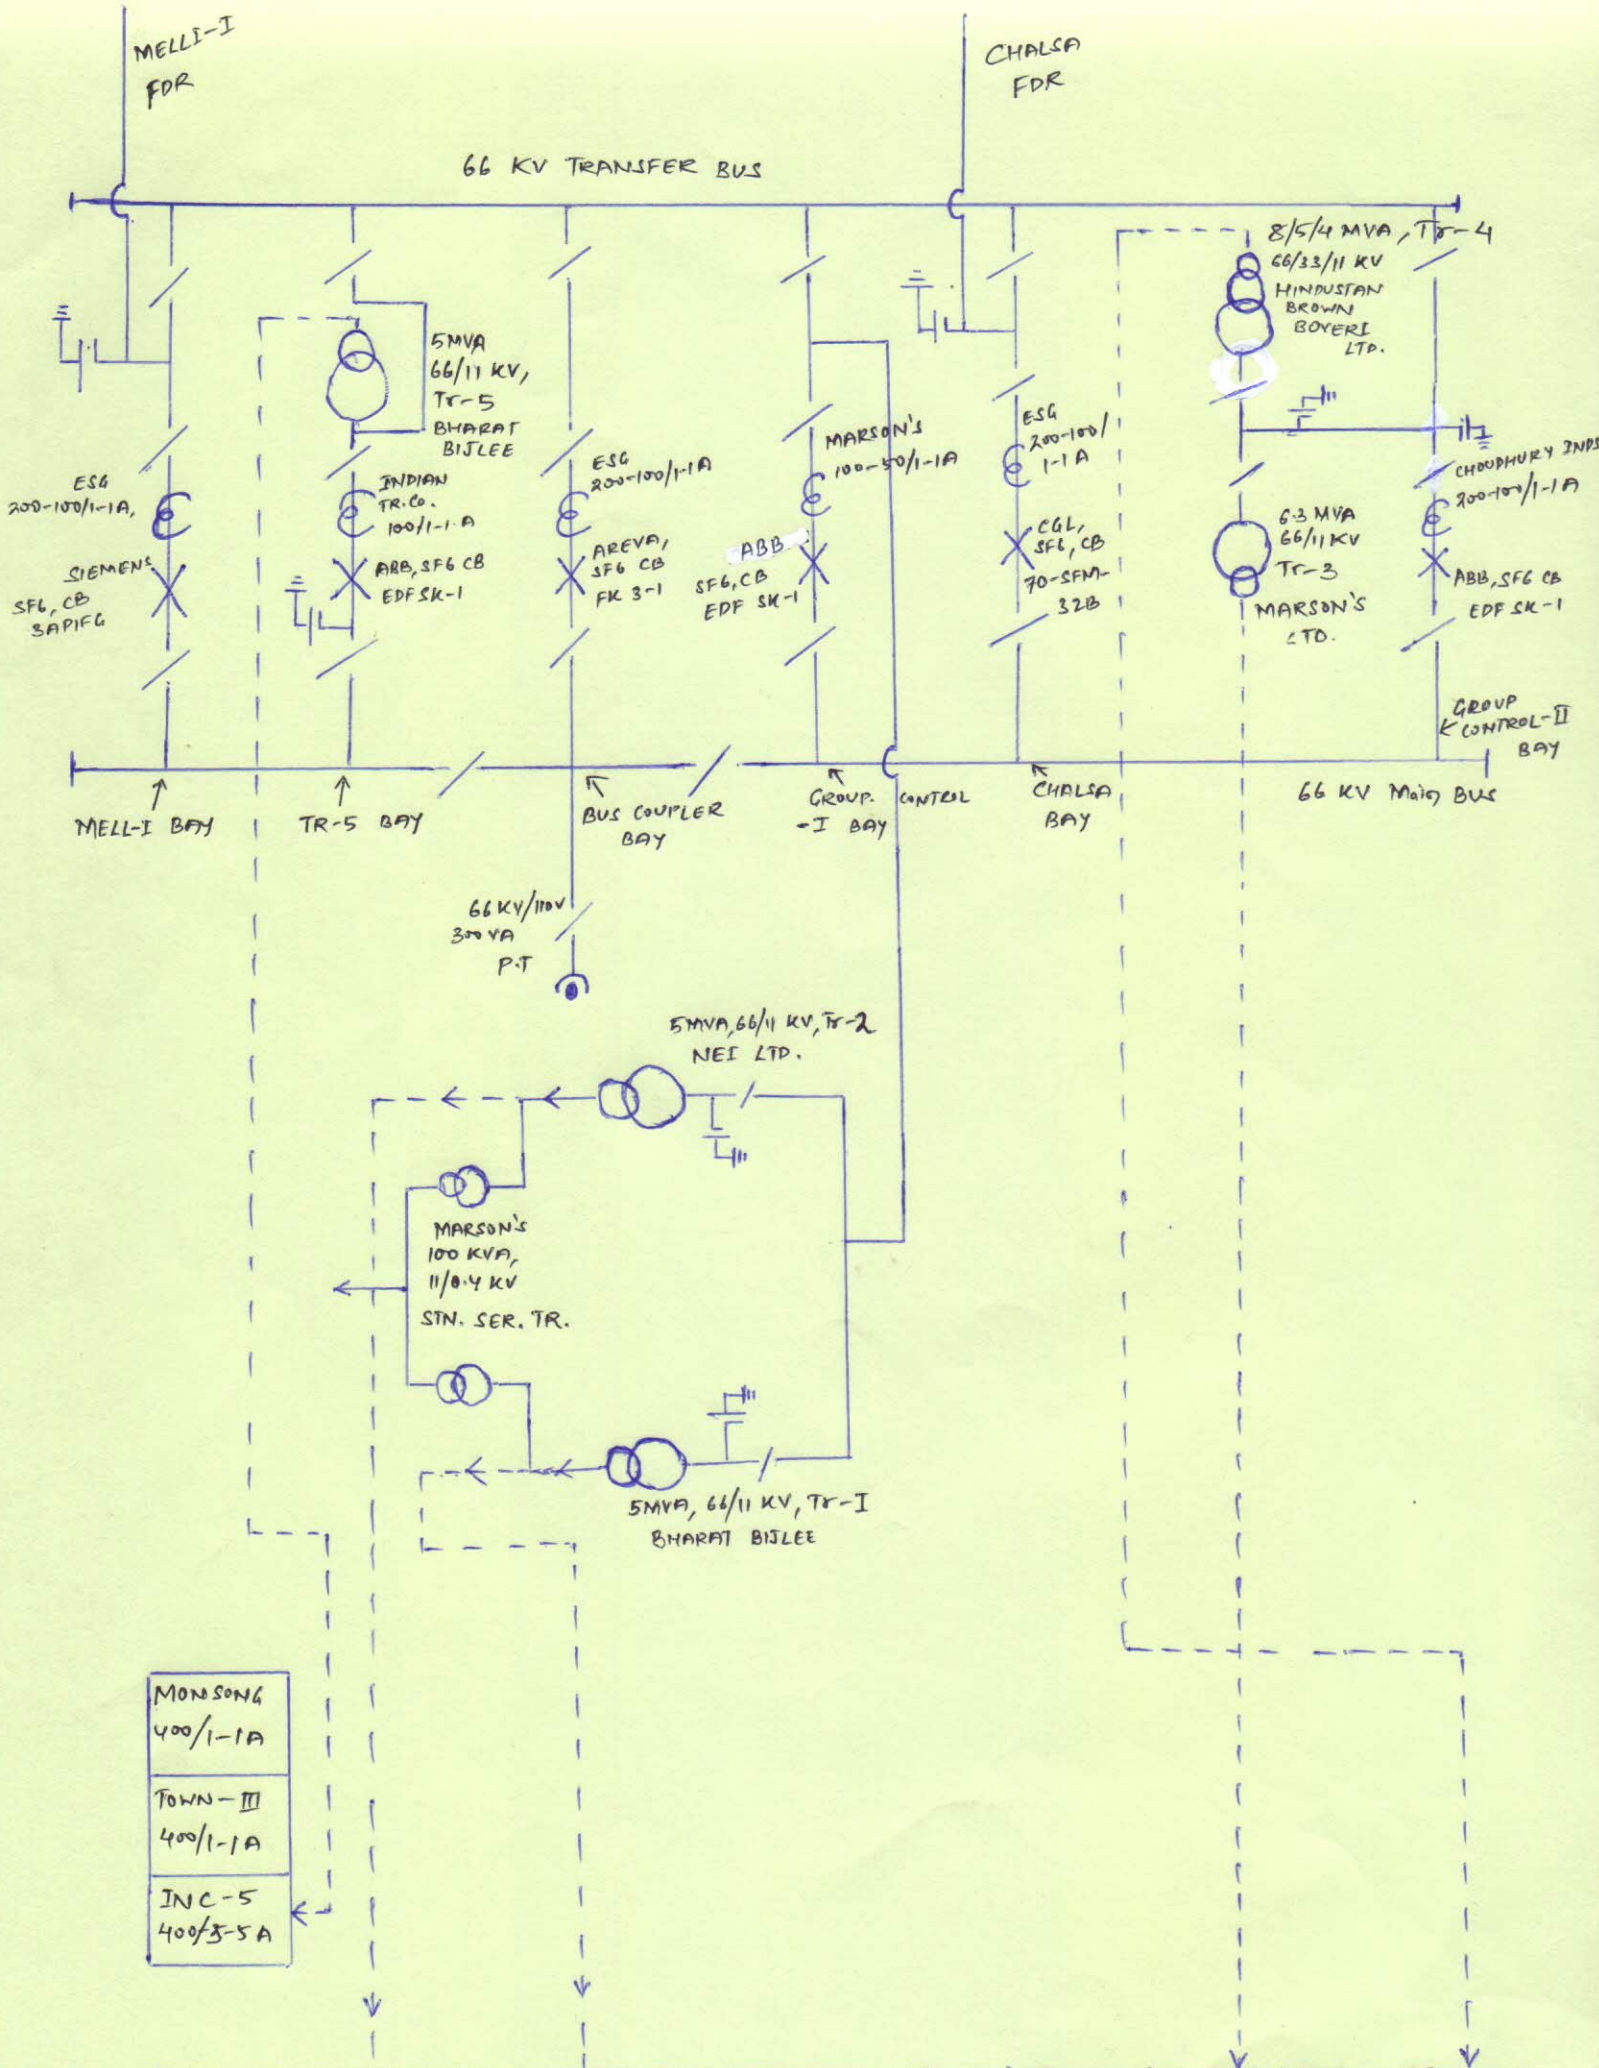 MELLI-I
FDR
CHALSA
FDR
66 KV TRANSFER BUS
8/5/4 MVA, Tr-4
66/33/11 KV
HINDUSTAN
BROWN
BOVERI
LTD.
5MVA
66/11 KV,
Tr-5
BHARAT
BIJLEE
ESG
200-100/1-1A,
SIEMENS
SF6, CB
3APIFG
INDIAN
TR.Co.
100/1-1.A
ABB, SF6 CB
EDFSK-1
ESG
200-100/1-1A
AREVA,
SF6 CB
FK 3-1
MARSON'S
100-50/1-1A
ABB
SF6, CB
EDF SK-1
ESG
200-100/
1-1A
CGL,
SF6, CB
70-SFM-
32B
6.3 MVA
66/11 KV
Tr-3
MARSON'S
LTD.
CHOUDHURY INDS
200-100/1-1A
ABB, SF6 CB
EDF SK-1
GROUP
CONTROL-II
BAY
MELL-I BAY
TR-5 BAY
BUS COUPLER
BAY
GROUP. CONTROL
-I BAY
CHALSA
BAY
66 KV Main BUS
66 KV/110V
300 VA
P.T
5MVA,66/11 KV,Tr-2
NEI LTD.
MARSON'S
100 KVA,
11/0.4 KV
STN. SER. TR.
5MVA, 66/11 KV, Tr-I
BHARAT BIJLEE
MONSONG
400/1-1A
TOWN-III
400/1-1A
INC-5
400/5-5A